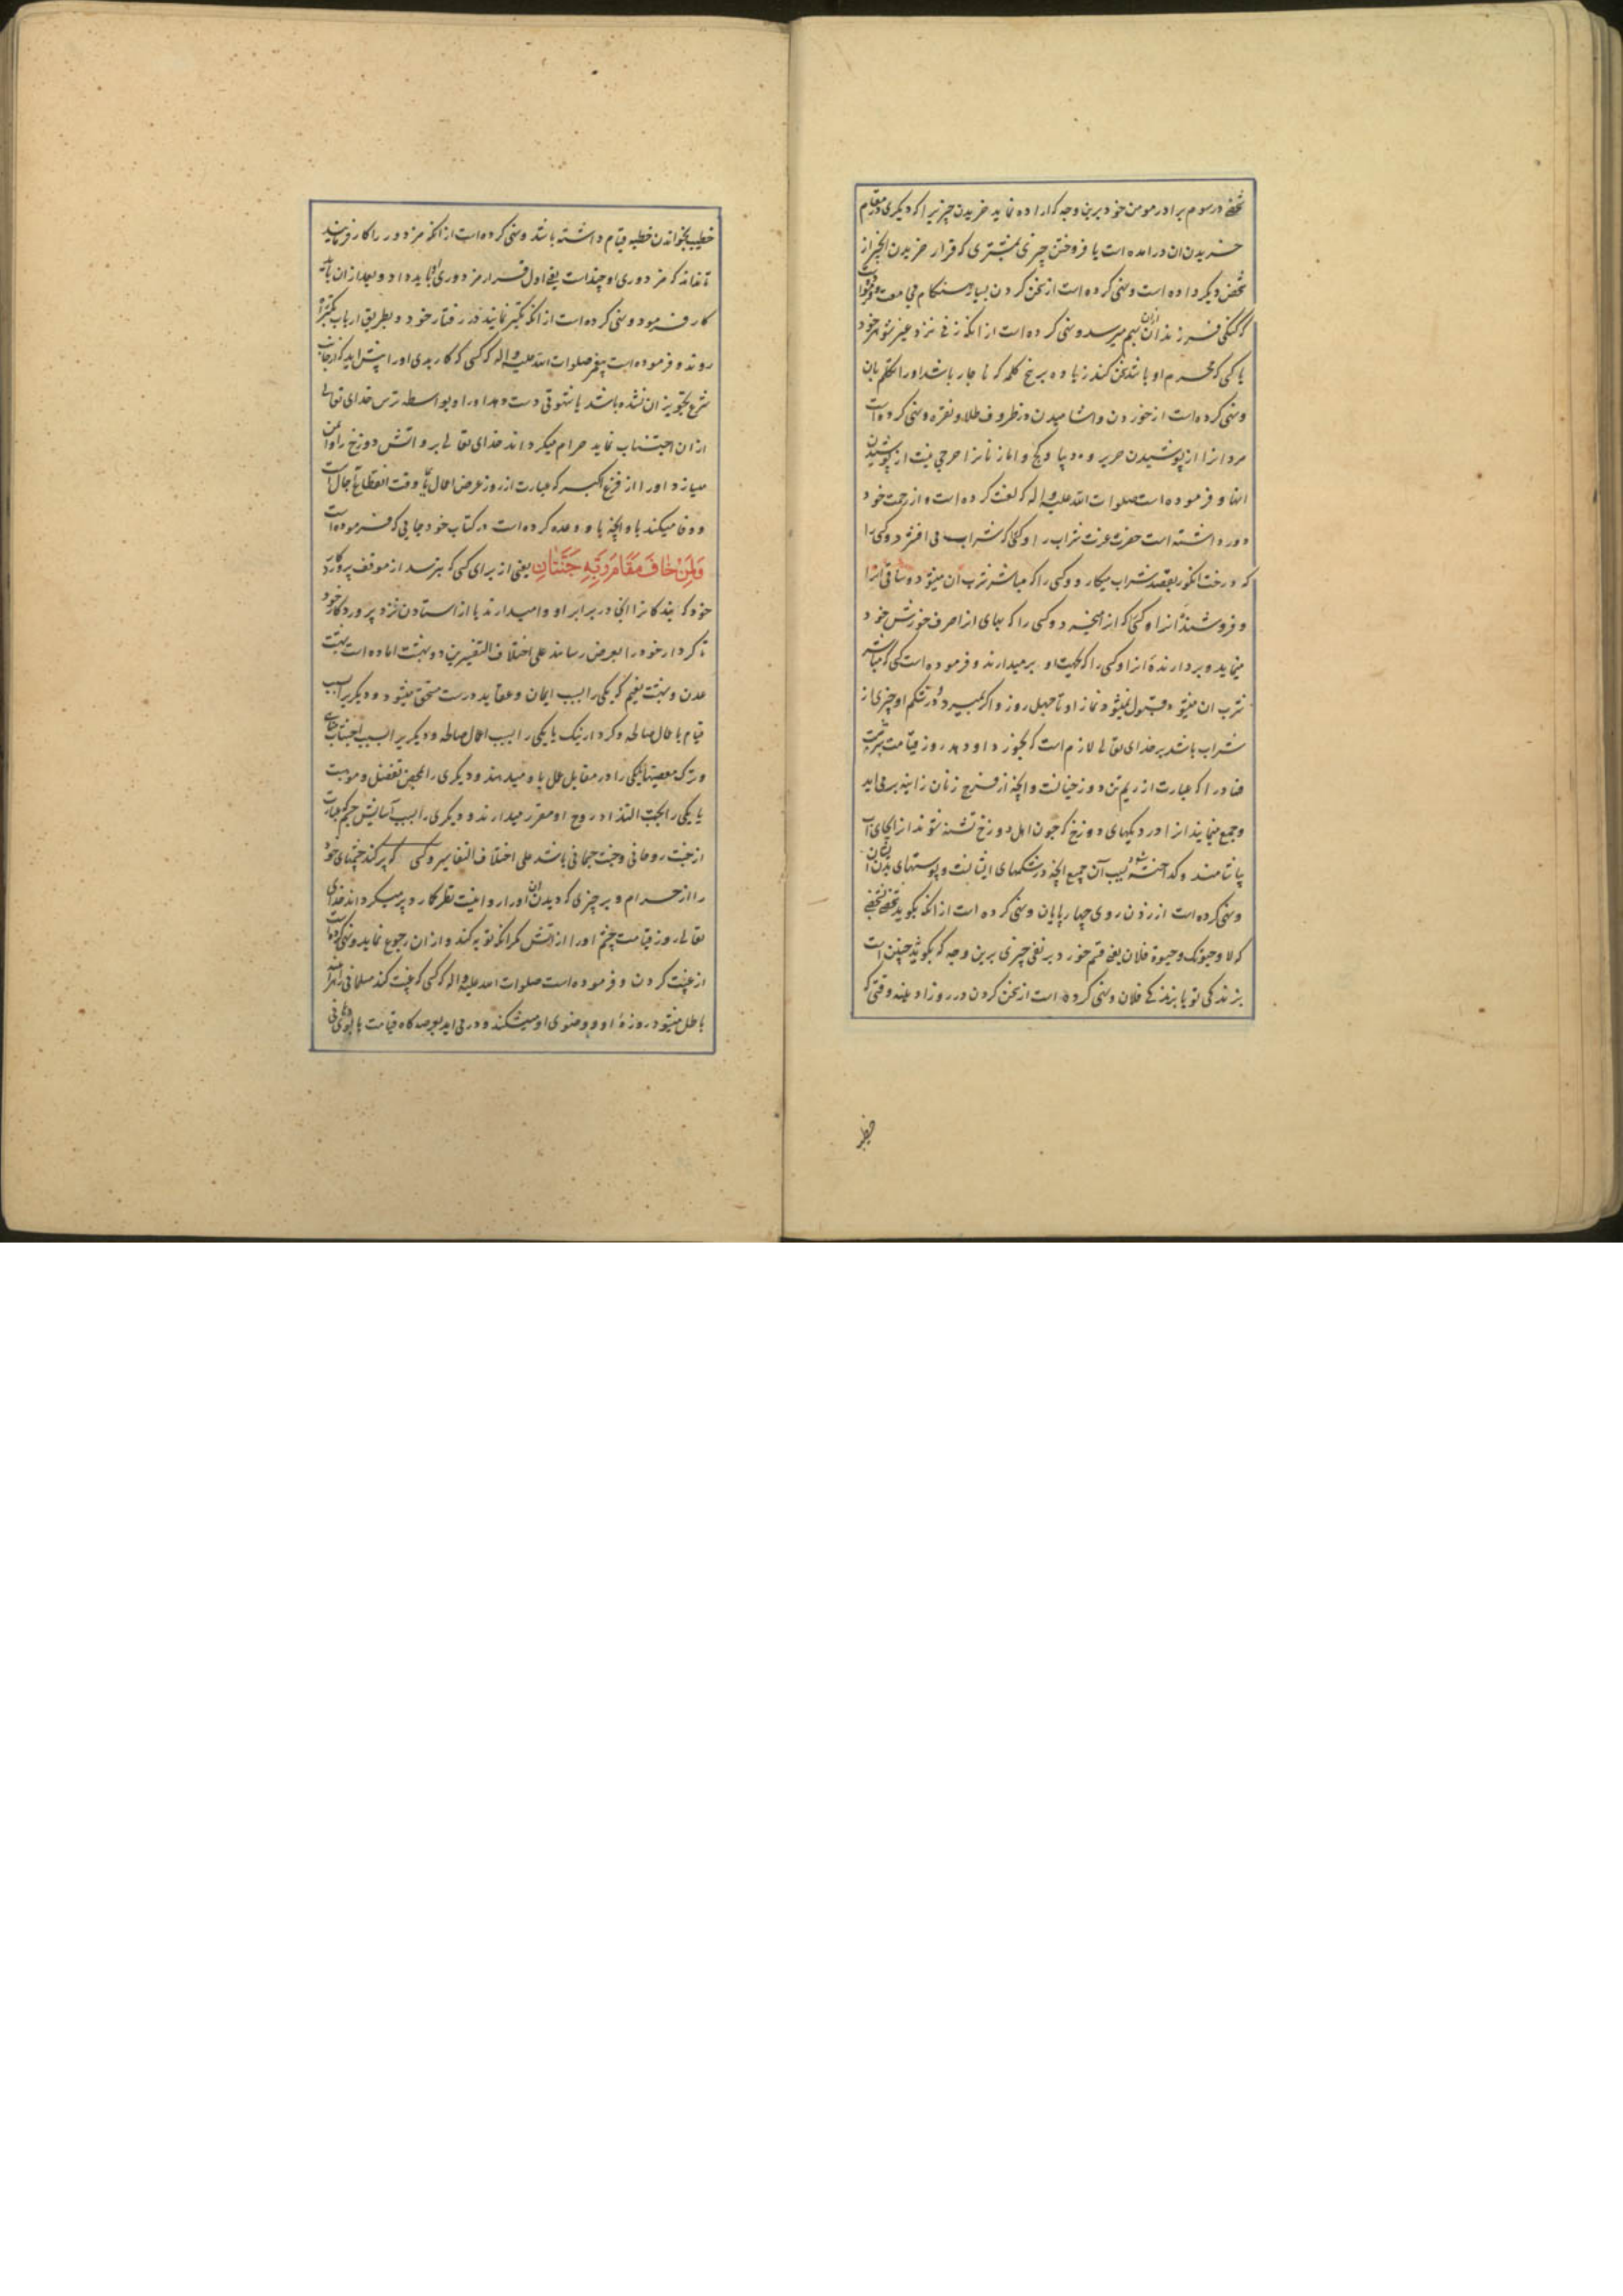 شخصی در سوم برادر مومن خود برین وجه که اراده نماید خریدن چیزیرا که دیکری در مقام
خریدن ان درامده است یا فروختن چیزی بمشتری که قرار خریدن انچیز از
شخص دیکر داده است و نهی کرده است از سخن کردن بسیار هنکام
که کنکی فرزند ازان بهم میرسد و نهی کرده است از انکه زنی نزد غیر شوهر خود
یا کسی که محرم او باشد سخن کند زیاده بر پنج کلمه که ناچار باشد اورا تکلم بان
و نهی کرده است از خوردن و اشامیدن در ظروف طلا و نقره و نهی کرده است
مردانرا از پوشیدن حریر و دیبا و کج و اما زنانرا حرجی نیست از پوشیدن
انها و فرموده است صلوات الله علیه واله که لعنت کرده است و از رحمت خود
دور داشته است حضرت عزت شراب را و کسی که شراب می افشرد و کسی را
که درخت انکور بقصد شراب میکارد و کسی را که مباشر شرب ان میشود و ساقی انرا
و فروشندهٔ انرا و کسی که انرا میخرد و کسی را که بهای انرا صرف خورش خود
مینماید و بردارندهٔ انرا و کسی را که بجهت او برمیدارند و فرموده است کسی که مباشر
شرب ان میشود قبول نمیشود نماز او تا چهل روز و اکر بمیرد و در شکم او چیزی از
شراب باشد بر خدای تعالی لازم است که بخورد او دهد روز قیامت شربت
فساد را که عبارت از ریم تن دوزخیانست و انچه از فرج زنان زانیه بر می اید
و جمع مینمایند انرا در دیکهای دوزخ که چون اهل دوزخ تشنه شوند انرا بجای آب
بیاشامند و کداخته شود بسبب آن جمیع انچه در شکمهای ایشانست و پوستهای بدن ایشان
و نهی کرده است از زدن روی چهارپایان و نهی کرده است از انکه بکوید شخصی بشخصی
که لا وحیوتک وحیوة فلان یعنی قسم خورد بر نفی چیزی برین وجه که بکوید نه چنین است
بزندکی تو یا بزندکی فلان و نهی کرده است از سخن کردن در روز ادینه وقتی که
خطیب
خطیب بخواندن خطبه قیام داشته باشد و نهی کرده است از انکه مزدور را کار فرمایند
تا نداند که مزدوری او چند است یعنی اول قرار مزدوری او باید داد و بعد از ان باید
کار فرمود و نهی کرده است از انکه تکبر نمایند در رفتار خود و بطریق ارباب تکبر راه
روند و فرموده است پیغمبر صلوات الله علیه واله که کسی که کار بدی اورا پیش اید که از جانب
شرع تجویز ان نشده باشد یا شهوتی دست دهد اورا و بواسطه ترس خدای تعالی
از ان اجتناب نماید حرام میکرداند خدای تعالی بر و اتش دوزخ را و ایمن
میسازد اورا از فزع اکبر که عبارت از روز عرض اعمال یا وقت انقطاع اجال است
و وفا میکند باو انچه باو وعده کرده است در کتاب خود جایی که فرموده است
وَلِمَنْ خٰافَ مَقٰامَ رَبِّهِ جَنَّتٰانِ یعنی از برای کسی که بترسد از موقف پروردکار
خود که بندکانرا در برابر او وامیدارند یا از استادن نزد پروردکار خود
تا کردار خود را بعرض رسانند علی اختلاف التفسیرین دو بهشت اماده است بهشت
عدن و بهشت نعیم که یکی را بسبب ایمان و عقاید درست مستحق میشود و دیکریرا بسبب
قیام باعمال صالحه و کردار نیک یا یکی را بسبب اعمال صالحه و دیکریرا بسبب اجتناب
و ترک معصیتها یا یکی را در مقابل عمل باو میدهند و دیکری را بمحض تفضل و موهبت
یا یکی را بجهت التذاذ روح او مقرر میدارند و دیکری را بسبب آسایش جسم که عبارت
از جنت روحانی و جنت جسمانی باشد علی اختلاف التفاسیر و کسی که پر کند چشمهای خود
را از حرام و بر چیزی که دیدن ان اورا روا نیست نظر کارد پر میکرداند خدای
تعالی روز قیامت چشم اورا از اتش مکر انکه توبه کند و از ان رجوع نماید و نهی کرده است
از غیبت کردن و فرموده است صلوات الله علیه واله که کسی که غیبت کند مسلمانی را
باطل میشود روزهٔ او و وضوی او میشکند و در می اید بعرصه کاه قیامت با بوی